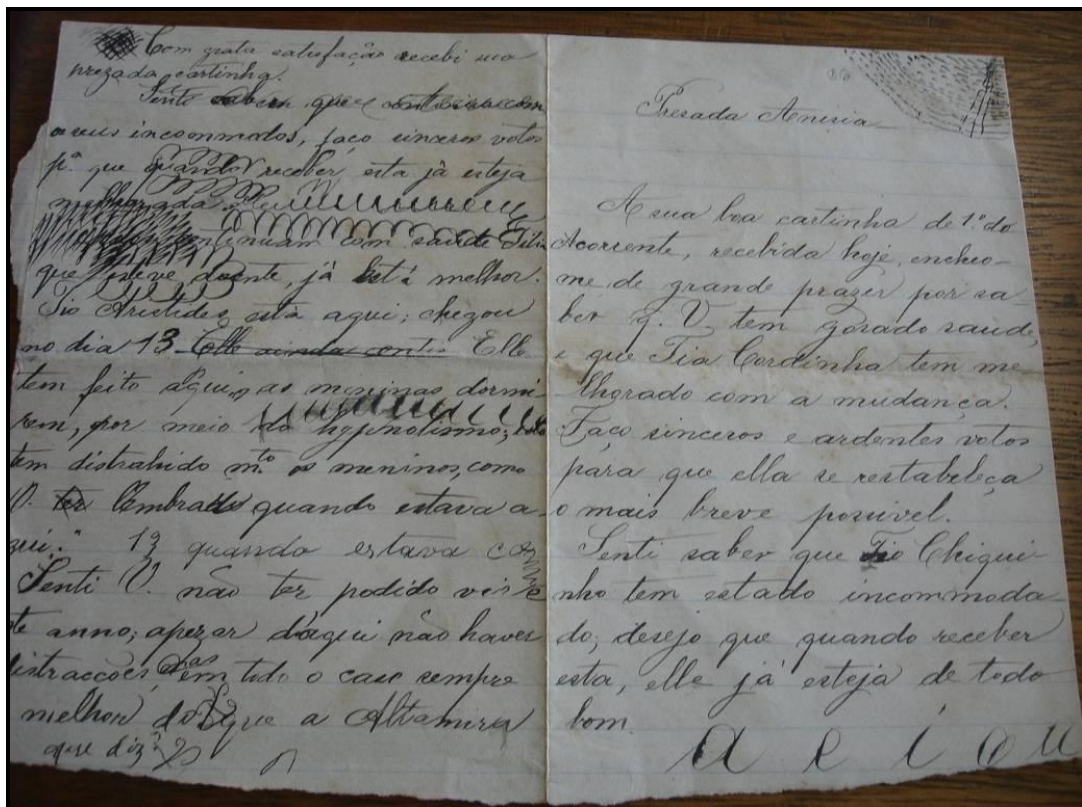 Com grata satisfação recebi sua
prezada cartinha.
Senti que continua com
os seus incommodos, faço sinceros votos
pª. que quando receber esta já esteja
melhorada
continuam com saude
que esteve doente, já está melhor.
Tio Aristides está aqui; chegou
no dia 13 Elle ainda contin Elle
tem feito algumas meninas dormi-
rem, por meio do hypnotismo;
tem distrahido mto os meninos, como
V. lembra quando estava a-
qui." 13 quando estava co
Senti V. não ter podido vir
te anno; apezar d'aqui não haver
distracções, mas em todo o caso sempre
melhor do que a Altamira
que diz?
86
Presada Anisia
A sua boa cartinha de 1º. do
corrente, recebida hoje, encheo-
me de grande prazer por sa
ber q. V. tem gosado saude,
e que Tia Cordinha tem me-
lhorado com a mudança.
Faço sinceros e ardentes votos
para que ella se restabeleça
o mais breve possivel.
Senti saber que Tio Chiqui-
nho tem estado incommoda
do, desejo que quando receber
esta, elle já esteja de todo
bom.
a e i o u